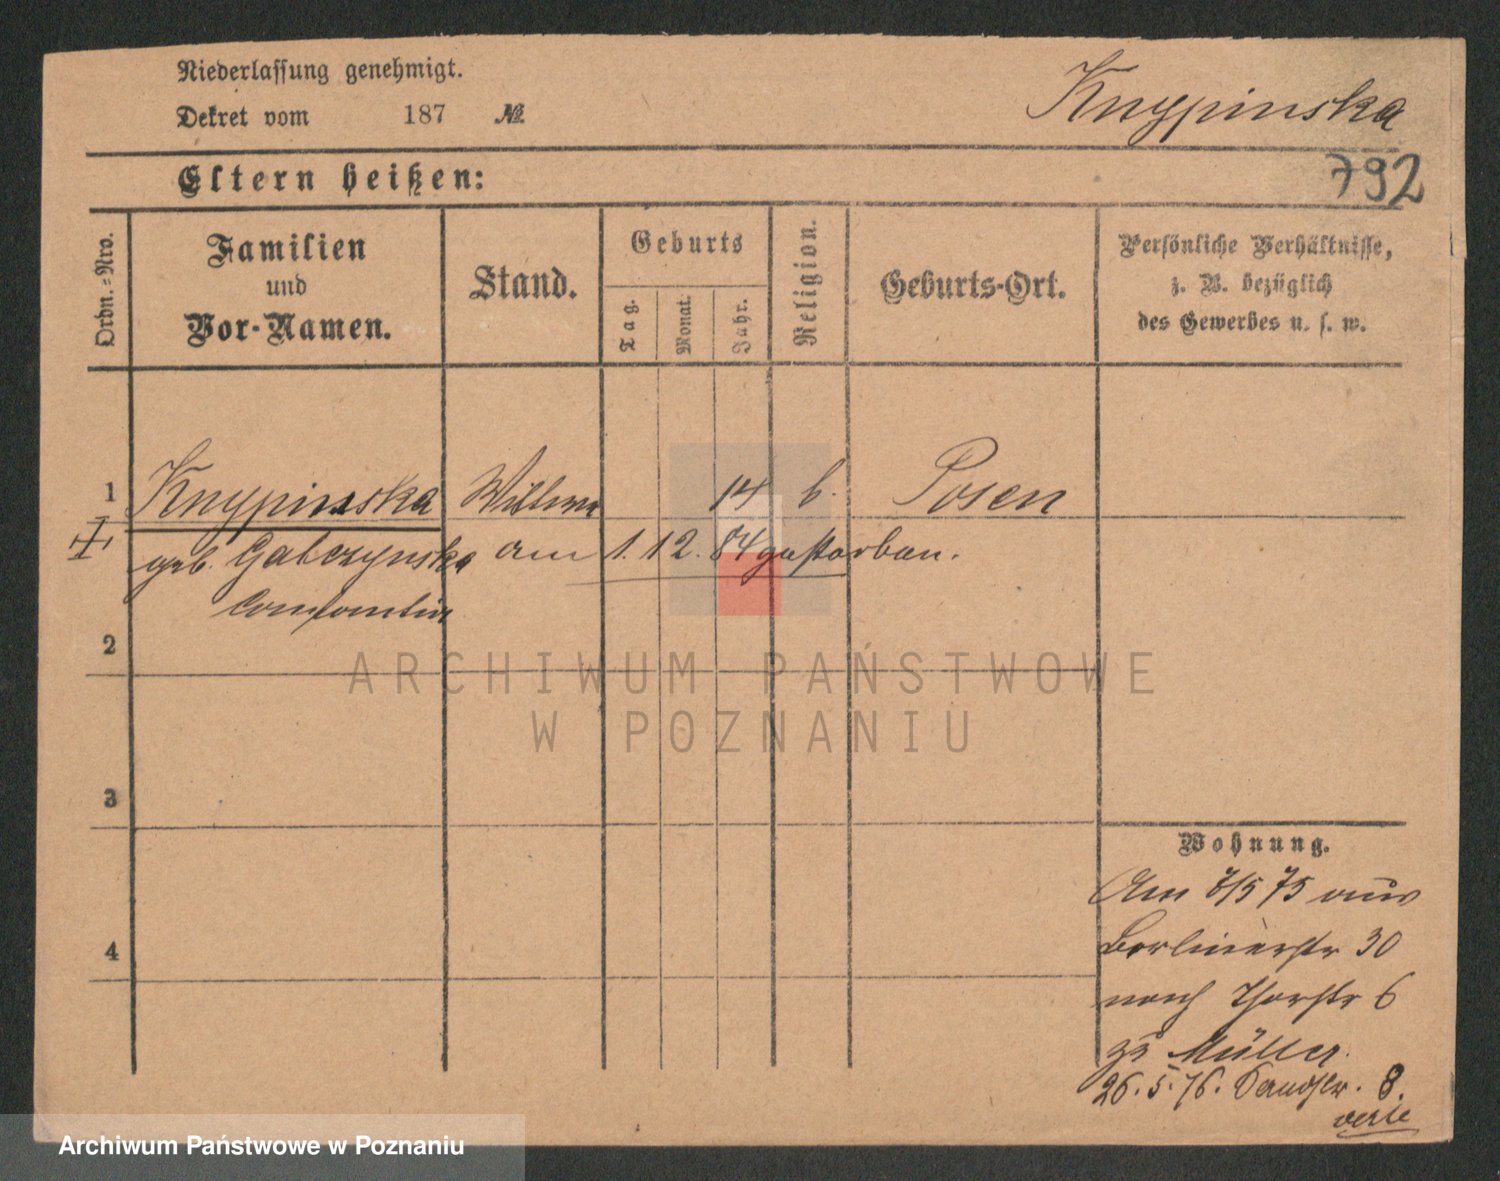 Niederlassung genehmigt.
Dekret vom 187 №
Knypinska
792
Eltern heißen:
Ordn.-Nro.
Familien
und
Vor-Namen.
Stand.
Geburts
Tag.
Monat.
Jahr.
Religion.
Geburts-Ort.
Persönliche Verhältnisse,
z. B. bezüglich
des Gewerbes u. s. w.
1 Knypinska Wittwe 14 k. Posen
geb. Gatczynska am 1.12.84 gestorben.
2
ARCHIWUM PAŃSTWOWE
W POZNANIU
3
4
Wohnung.
Am 7/5 75 aus
Berlinerstr 30
nach Thorstr 6
zu Müller.
26.5.76. Sandstr. 8.
verte
Archiwum Państwowe w Poznaniu